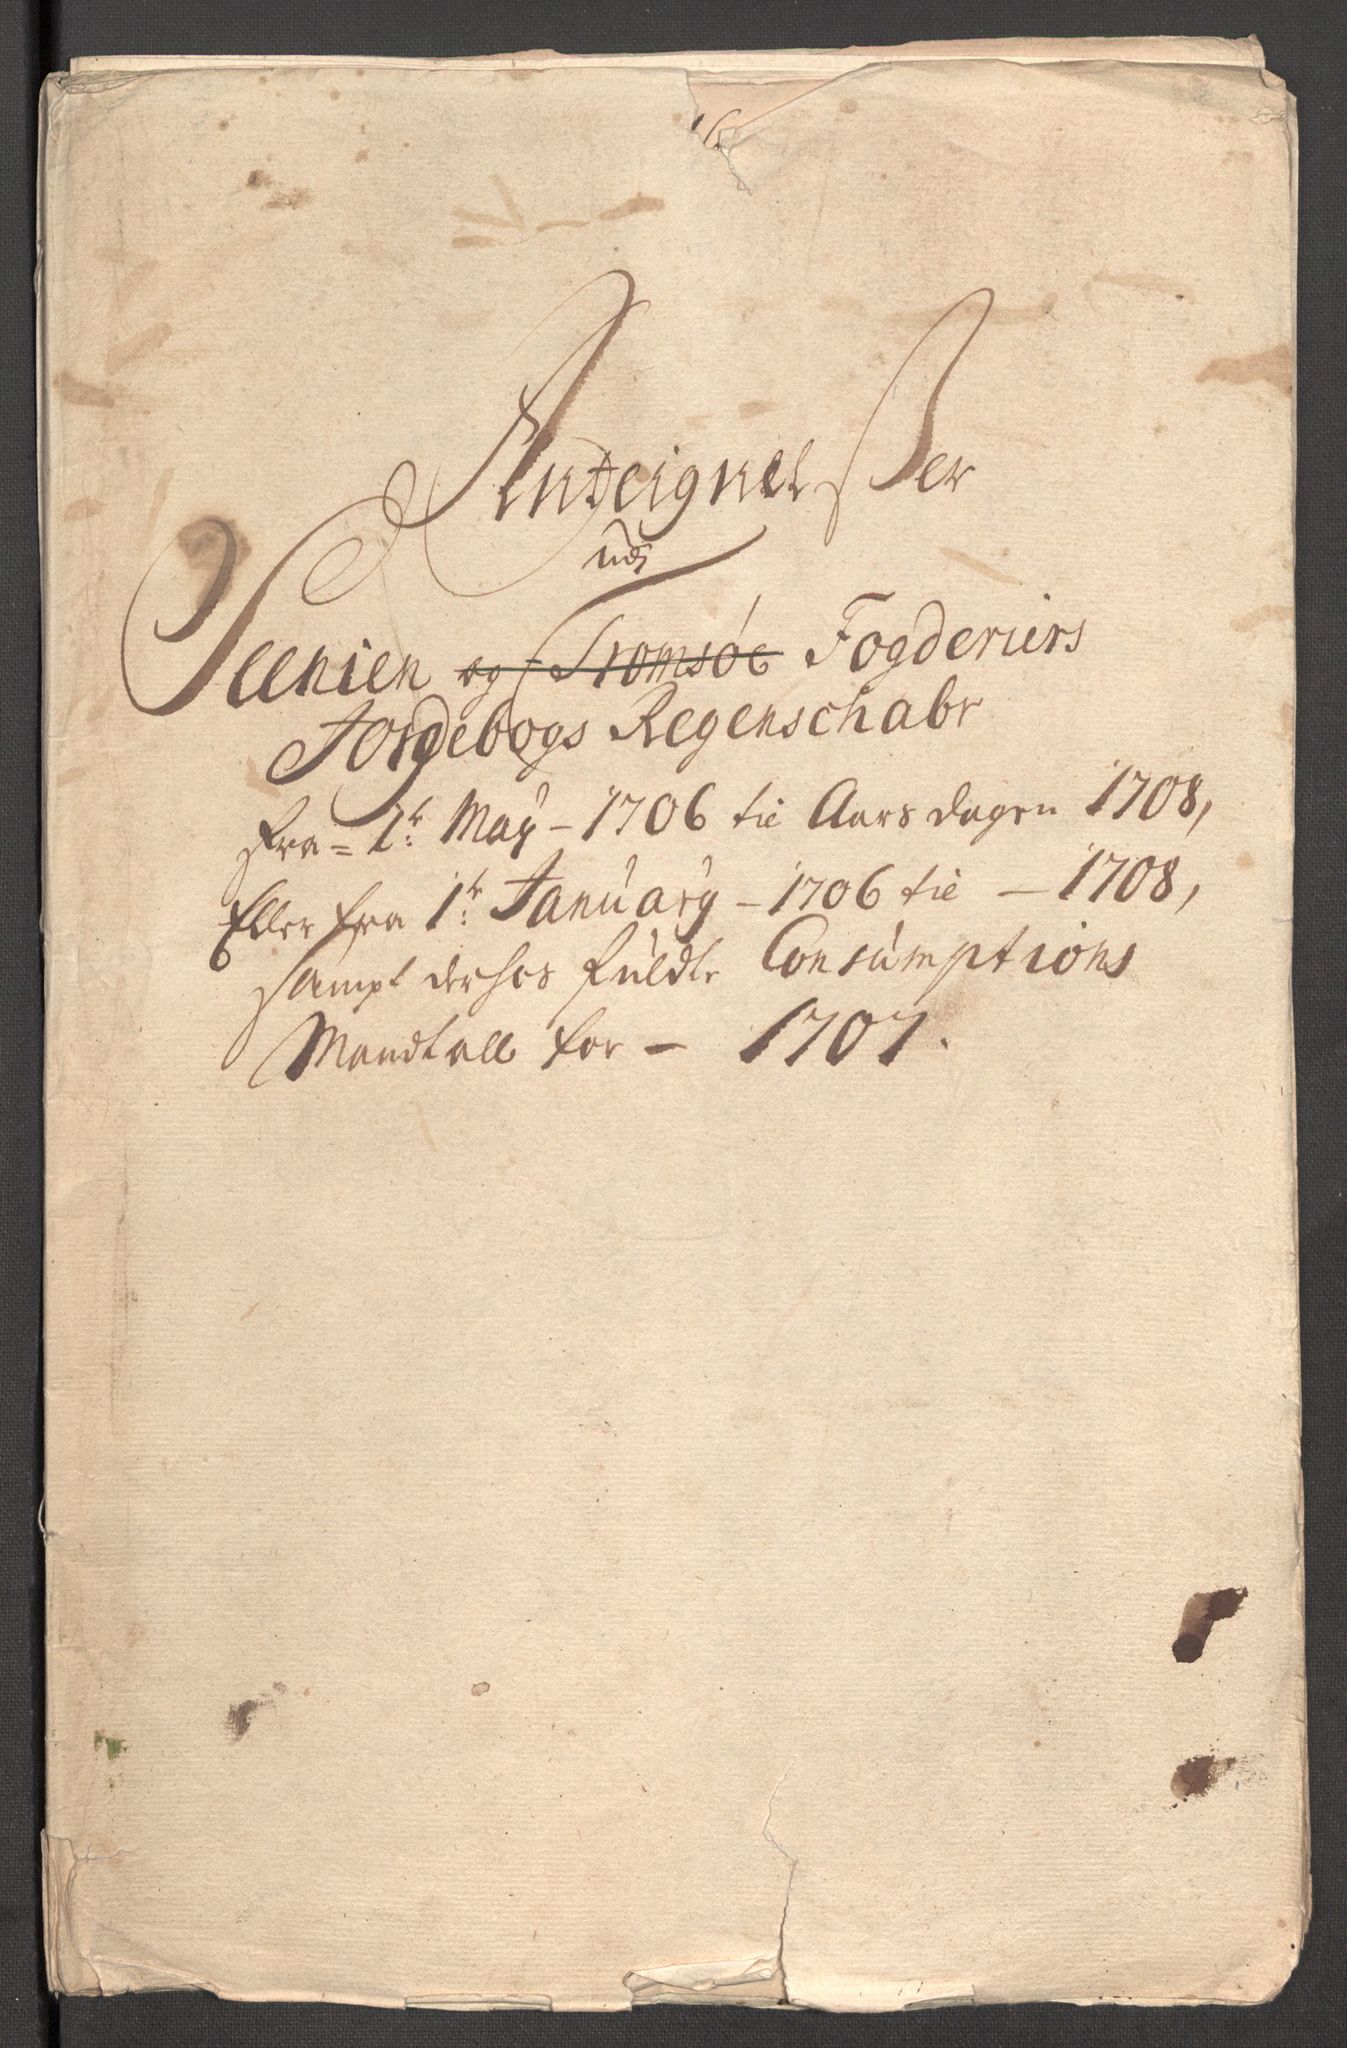 Anteignelßer
udj
Seenien og Tromsøe Fogderiers
Jordebogs Regenschabr
fra = 1te: May - 1706 til Aarsdagen 1708,
Eller fra 1te: January - 1706 til - 1708,
sampt derhos fuldte Consumptions
Mandtall for - 1707.